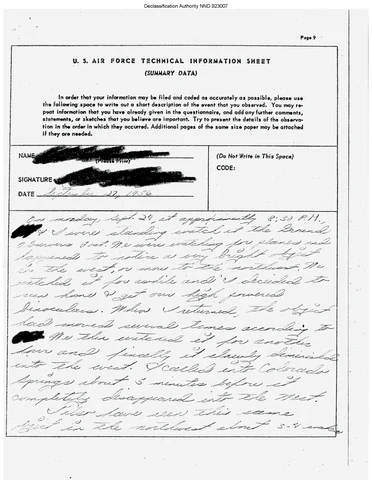 Declassification Authority NND 923007
Page 9
U. S. AIR FORCE TECHNICAL INFORMATION SHEET
(SUMMARY DATA)
In order that your information may be filed and coded as accurately as possible, please use
the following space to write out a short description of the event that you observed. You may re-
peat information that you have already given in the questionnaire, and add any further comments,
statements, or sketches that you believe are important. Try to present the details of the observa-
tion in the order in which they occurred. Additional pages of the same size paper may be attached
if they are needed.
NAME
(Please Print)
SIGNATURE
DATE September 27, 1956
(Do Not Write in This Space)
CODE:
On monday, Sept. 24, at approximately 8:30 P.M.,
& I were standing watch at the General
Observers Post. We were watching for planes and
happened to notice a very bright object
in the west, or more to the northwest. We
watched it for awhile and I decided to
run home & get our high powered
binoculars. When I returned, the object
had moved several times according to
We then watched it for another
hour and finally it slowly diminished
into the west. I called into Colorado
Springs about 5 minutes before it
completely disappeared into the West.
I also have seen this same
object in the northwest about 3-4 weeks